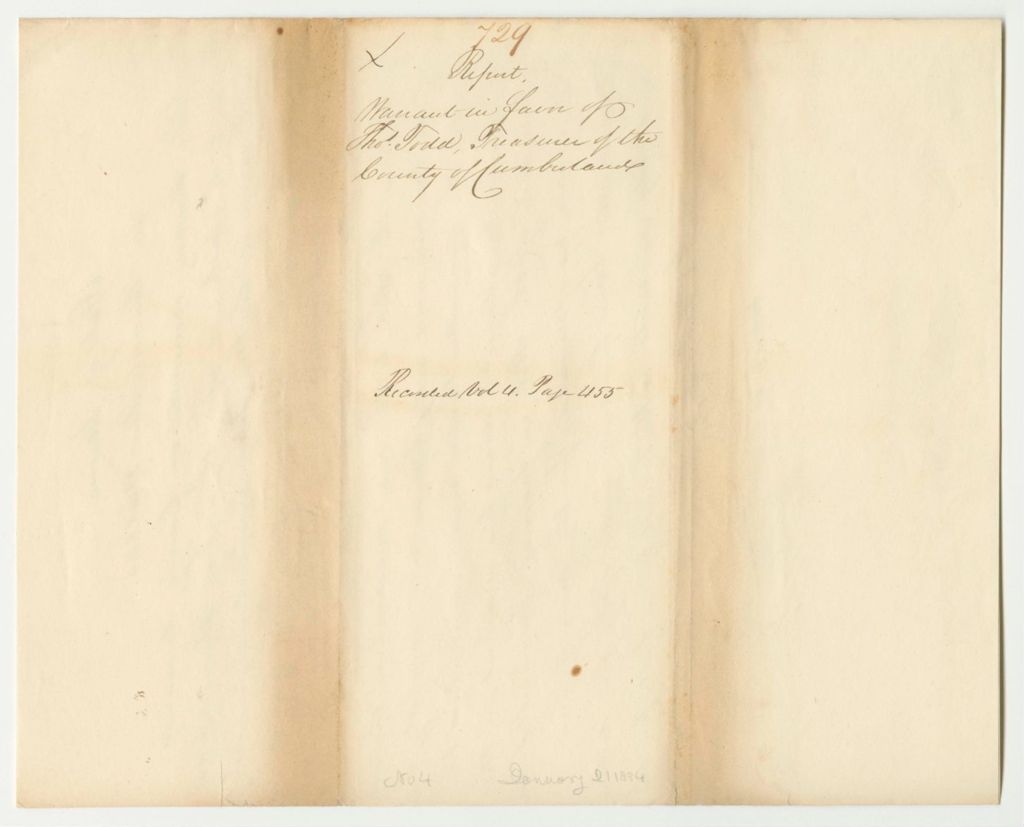 729
X
Report.
Warrant in favor of
Tho.s Todd, Treasurer of the
County of Cumberland
Recorded Vol 4. Page 455
No 4 January 21 1834